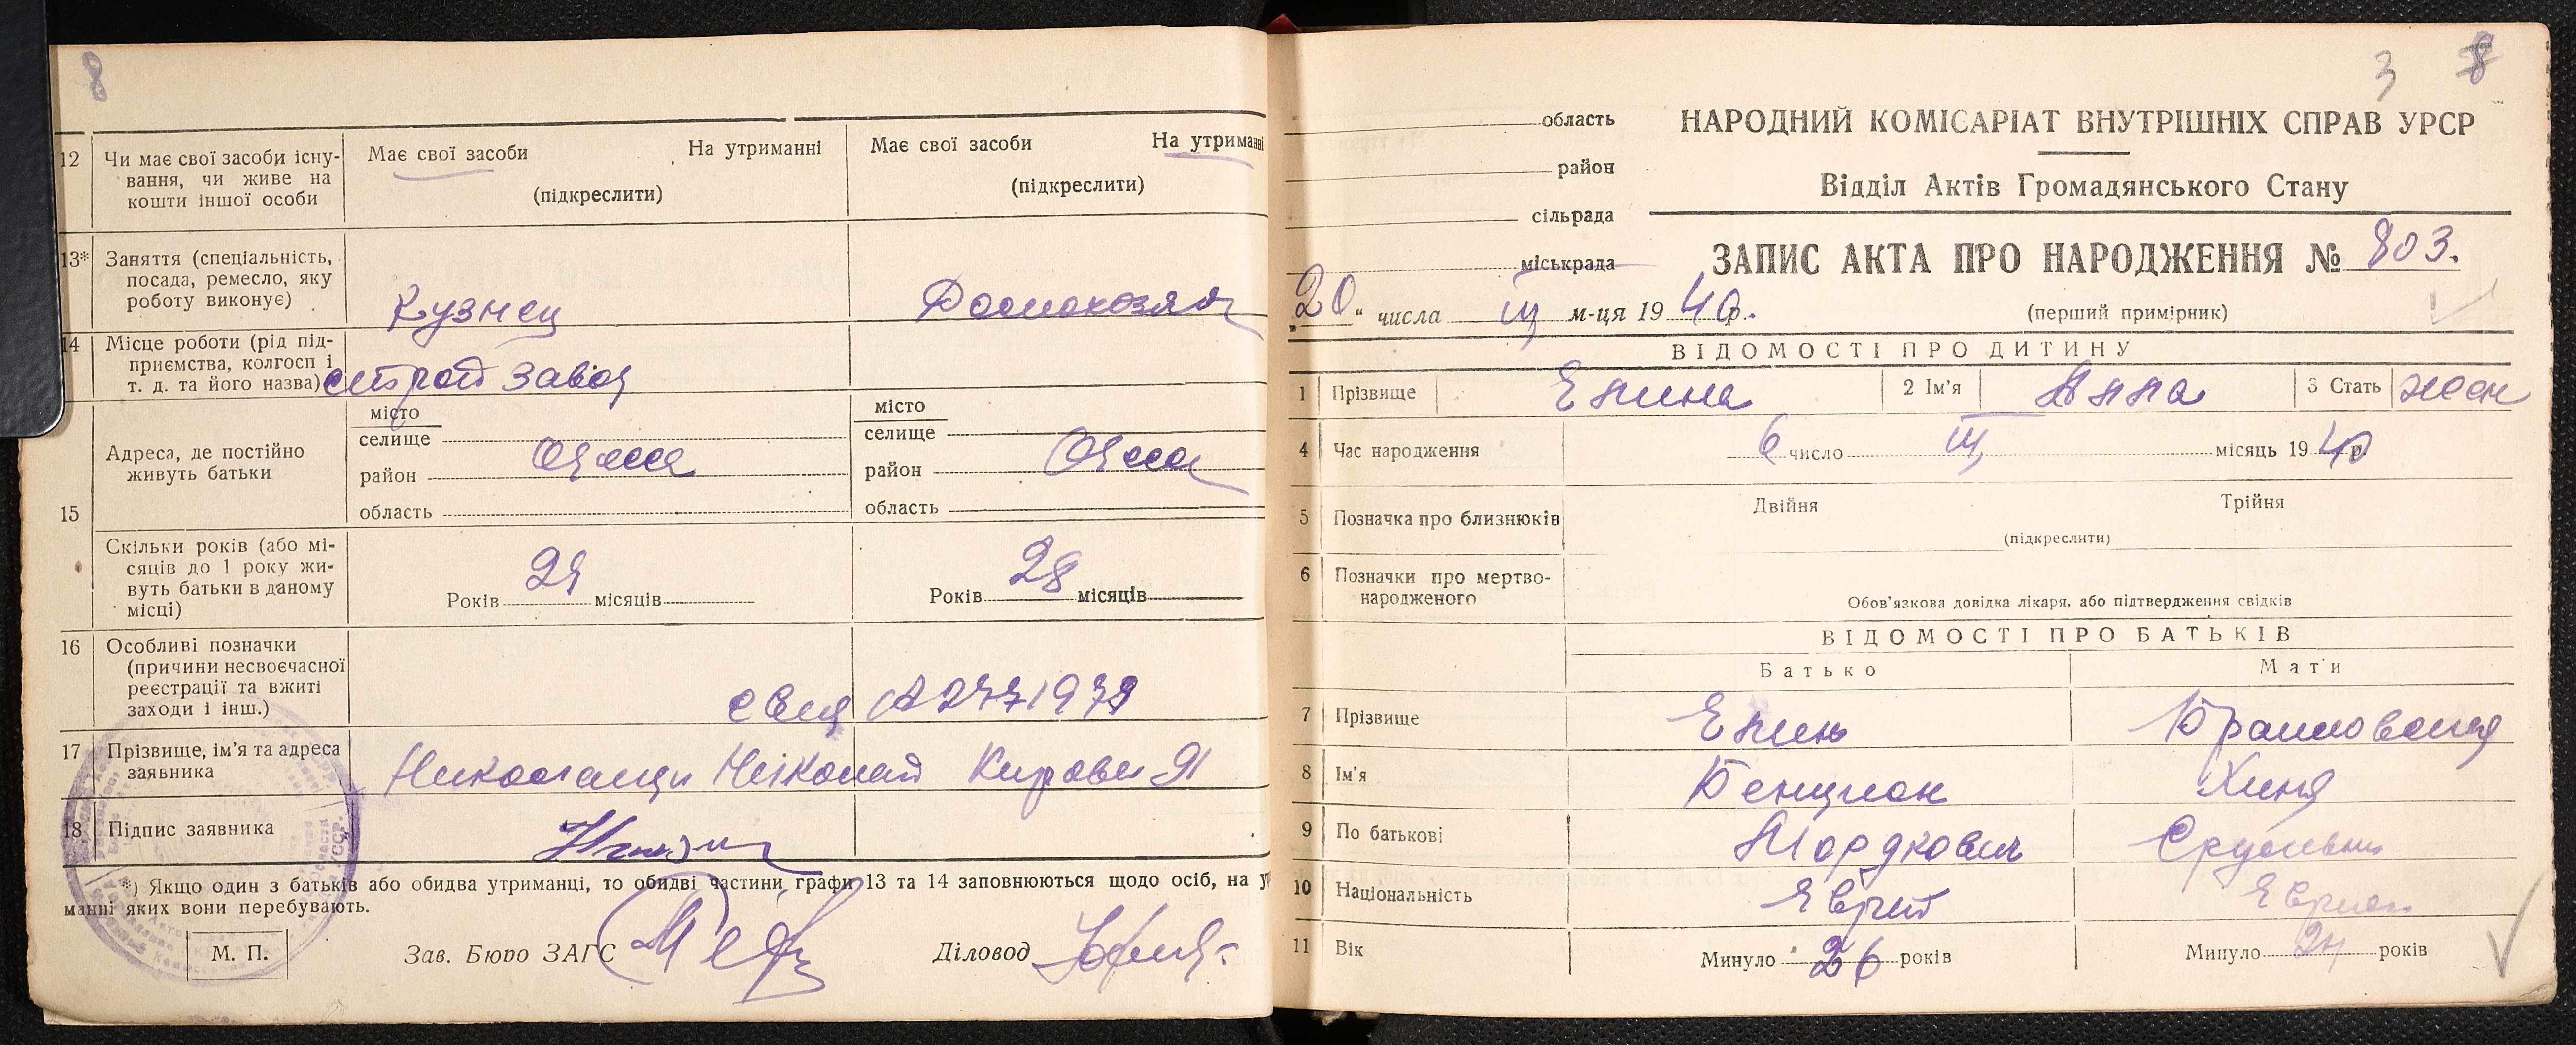 8
12 Чи має свої засоби існу-
вання, чи живе на
кошти іншої особи
Має свої засоби На утриманні
(підкреслити)
Має свої засоби На утриманні
(підкреслити)
13* Заняття (спеціальність,
посада, ремесло, яку
роботу виконує)
Кузнец
Домохозяй
14 Місце роботи (рід під-
приємства, колгосп і
т. д. та його назва)
завод
15
Адреса, де постійно
живуть батьки
місто
селище
район
область
Одесса
місто
селище
район
область
Одесса
Скільки років (або мі-
сяців до 1 року жи-
вуть батьки в даному
місці)
Років місяців
Років 28 місяців
16 Особливі позначки
(причини несвоєчасної
реєстрації та вжиті
заходи і інш.)
17 Прізвище, ім'я та адреса
заявника
Кирова
18 Підпис заявника
*) Якщо один з батьків або обидва утриманці, то обидві частини графи 13 та 14 заповнюються щодо осіб, на у
манні яких вони перебувають.
М. П.
Зав. Бюро ЗАГС
Діловод
3 8
область
район
сільрада
міськрада
НАРОДНИЙ КОМІСАРІАТ ВНУТРІШНІХ СПРАВ УРСР
Відділ Актів Громадянського Стану
ЗАПИС АКТА ПРО НАРОДЖЕННЯ № 803.
(перший примірник)
„20“ числа III м-ця 1940р.
ВІДОМОСТІ ПРО ДИТИНУ
1 Прізвище Епина 2 Ім'я Анна 3 Стать жен
4 Час народження 6 число III місяць 1940р.
5 Позначка про близнюків Двійня Трійня
(підкреслити)
6 Позначки про мертво-
народженого
Обов'язкова довідка лікаря, або підтвердження свідків
ВІДОМОСТІ ПРО БАТЬКІВ
Батько Мати
7 Прізвище Епин
8 Ім'я Бенцион Хиня
9 По батькові Мордкович Сруливна
10 Національність Еврей Еврей
11 Вік Минуло 26 років Минуло 24 років